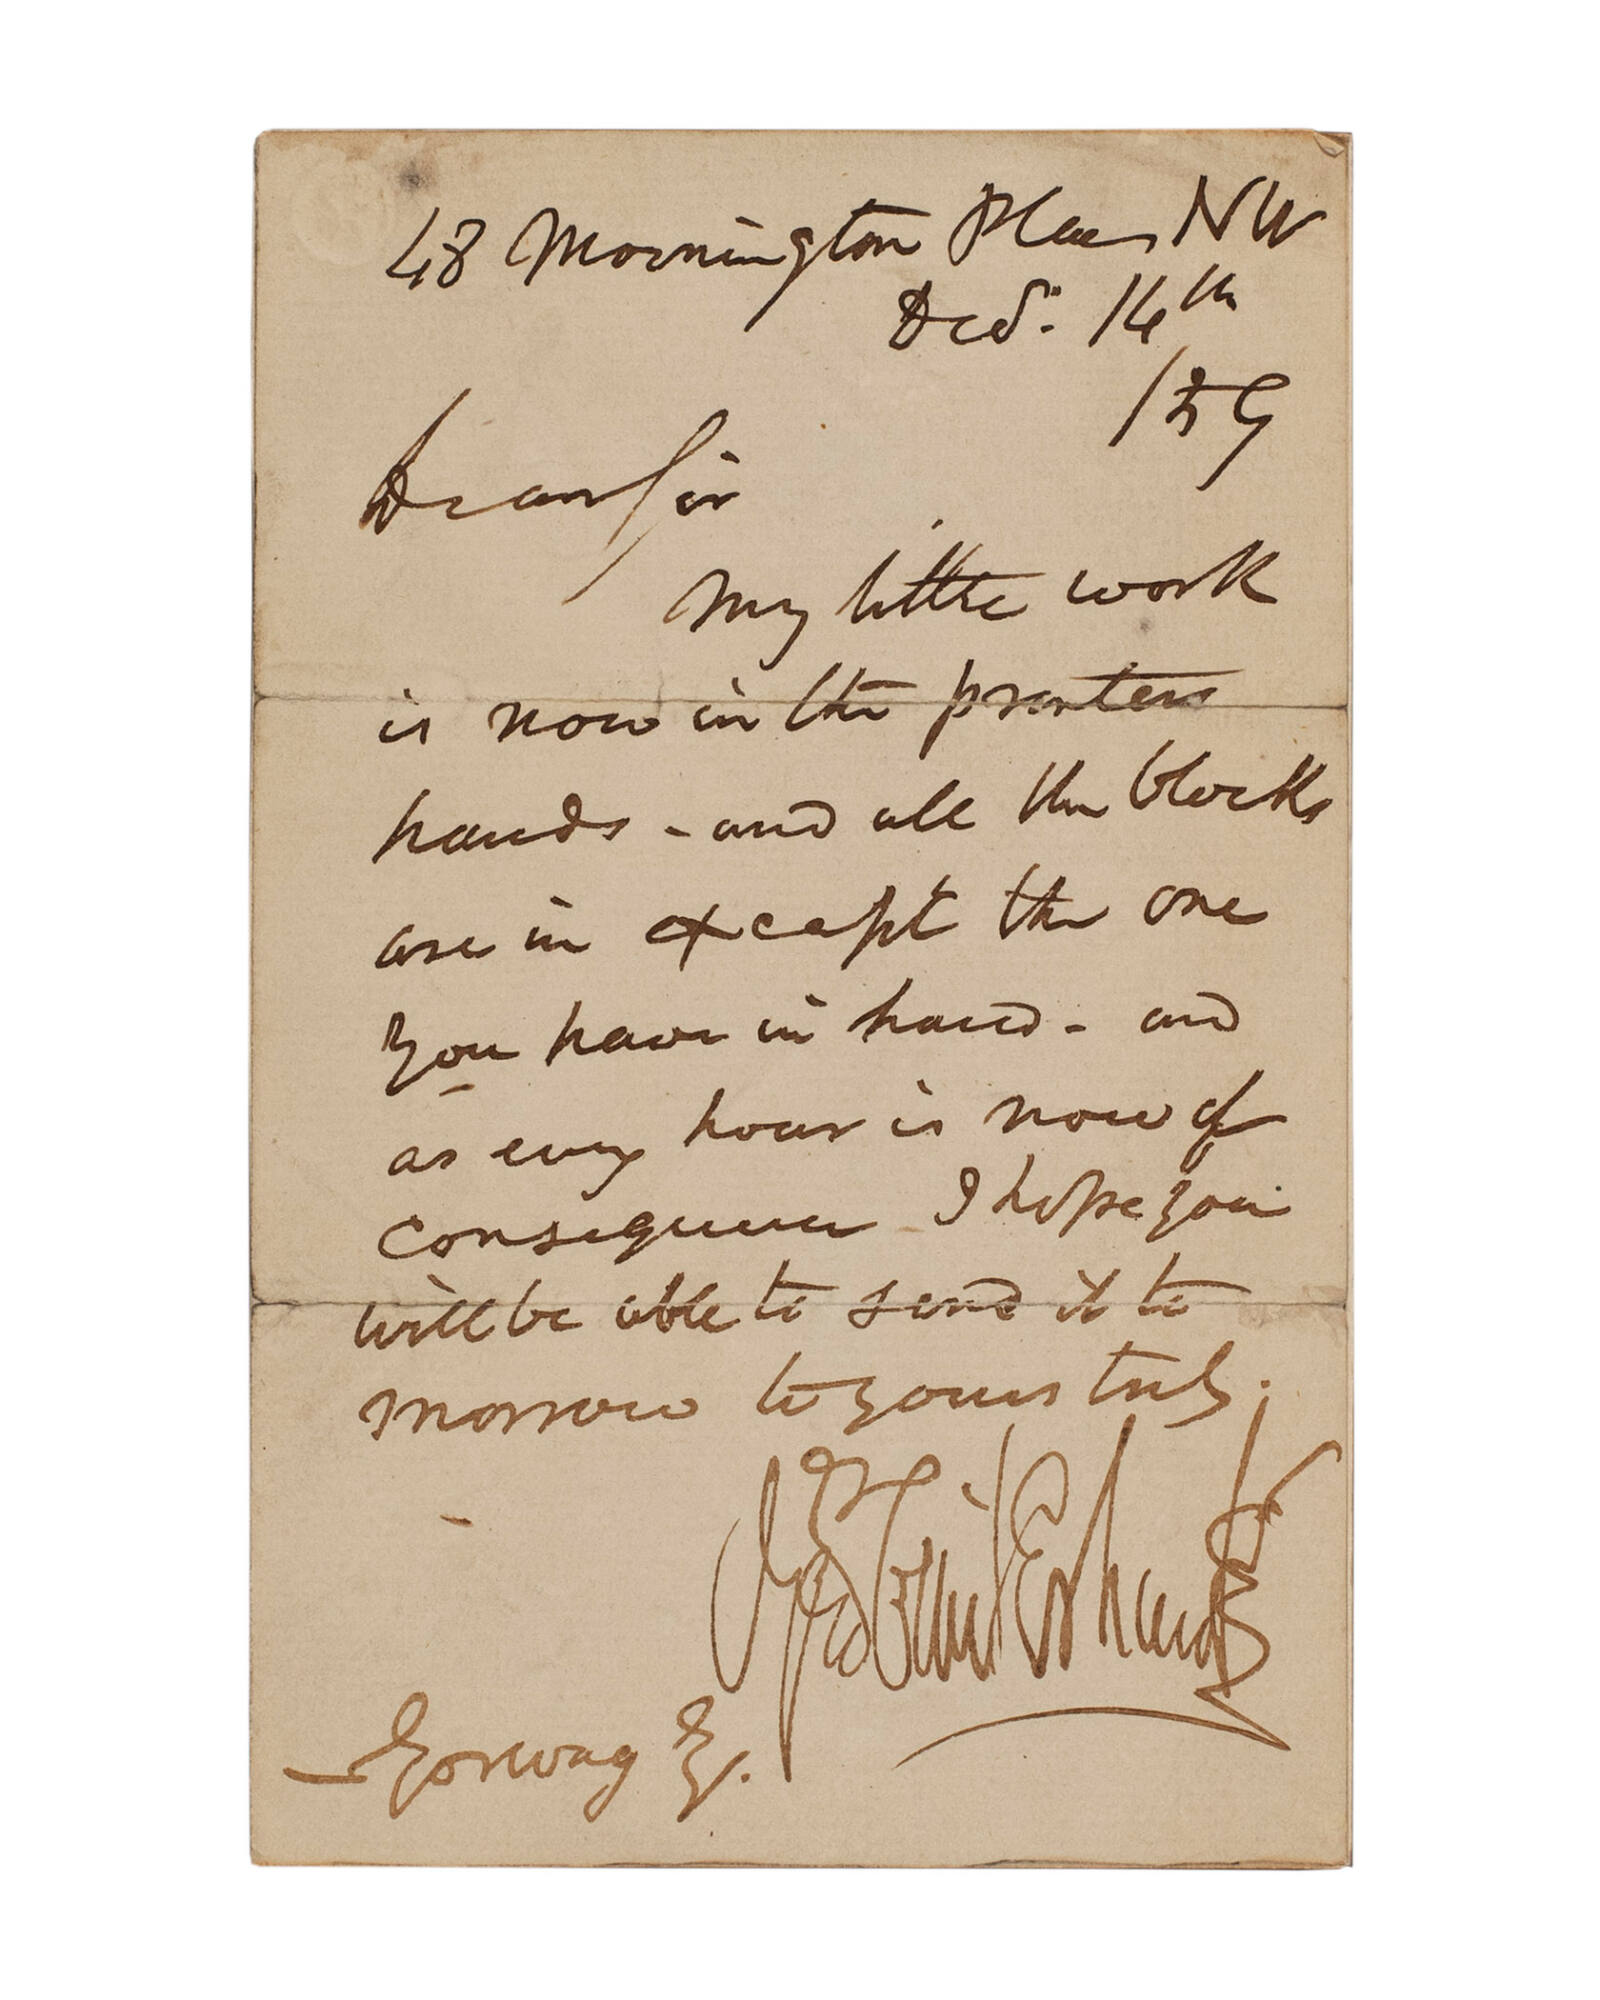 48 Mornington Place NW
Decr. 14th
/59
Dear Sir
My little work
is now in the printers
hands - and all the blocks
are in except the one
you have in hand - and
as every hour is now of
consequence I hope you
will be able to send it to
morrow to yours truly.
Geo Cruikshank
Gorway Eq.